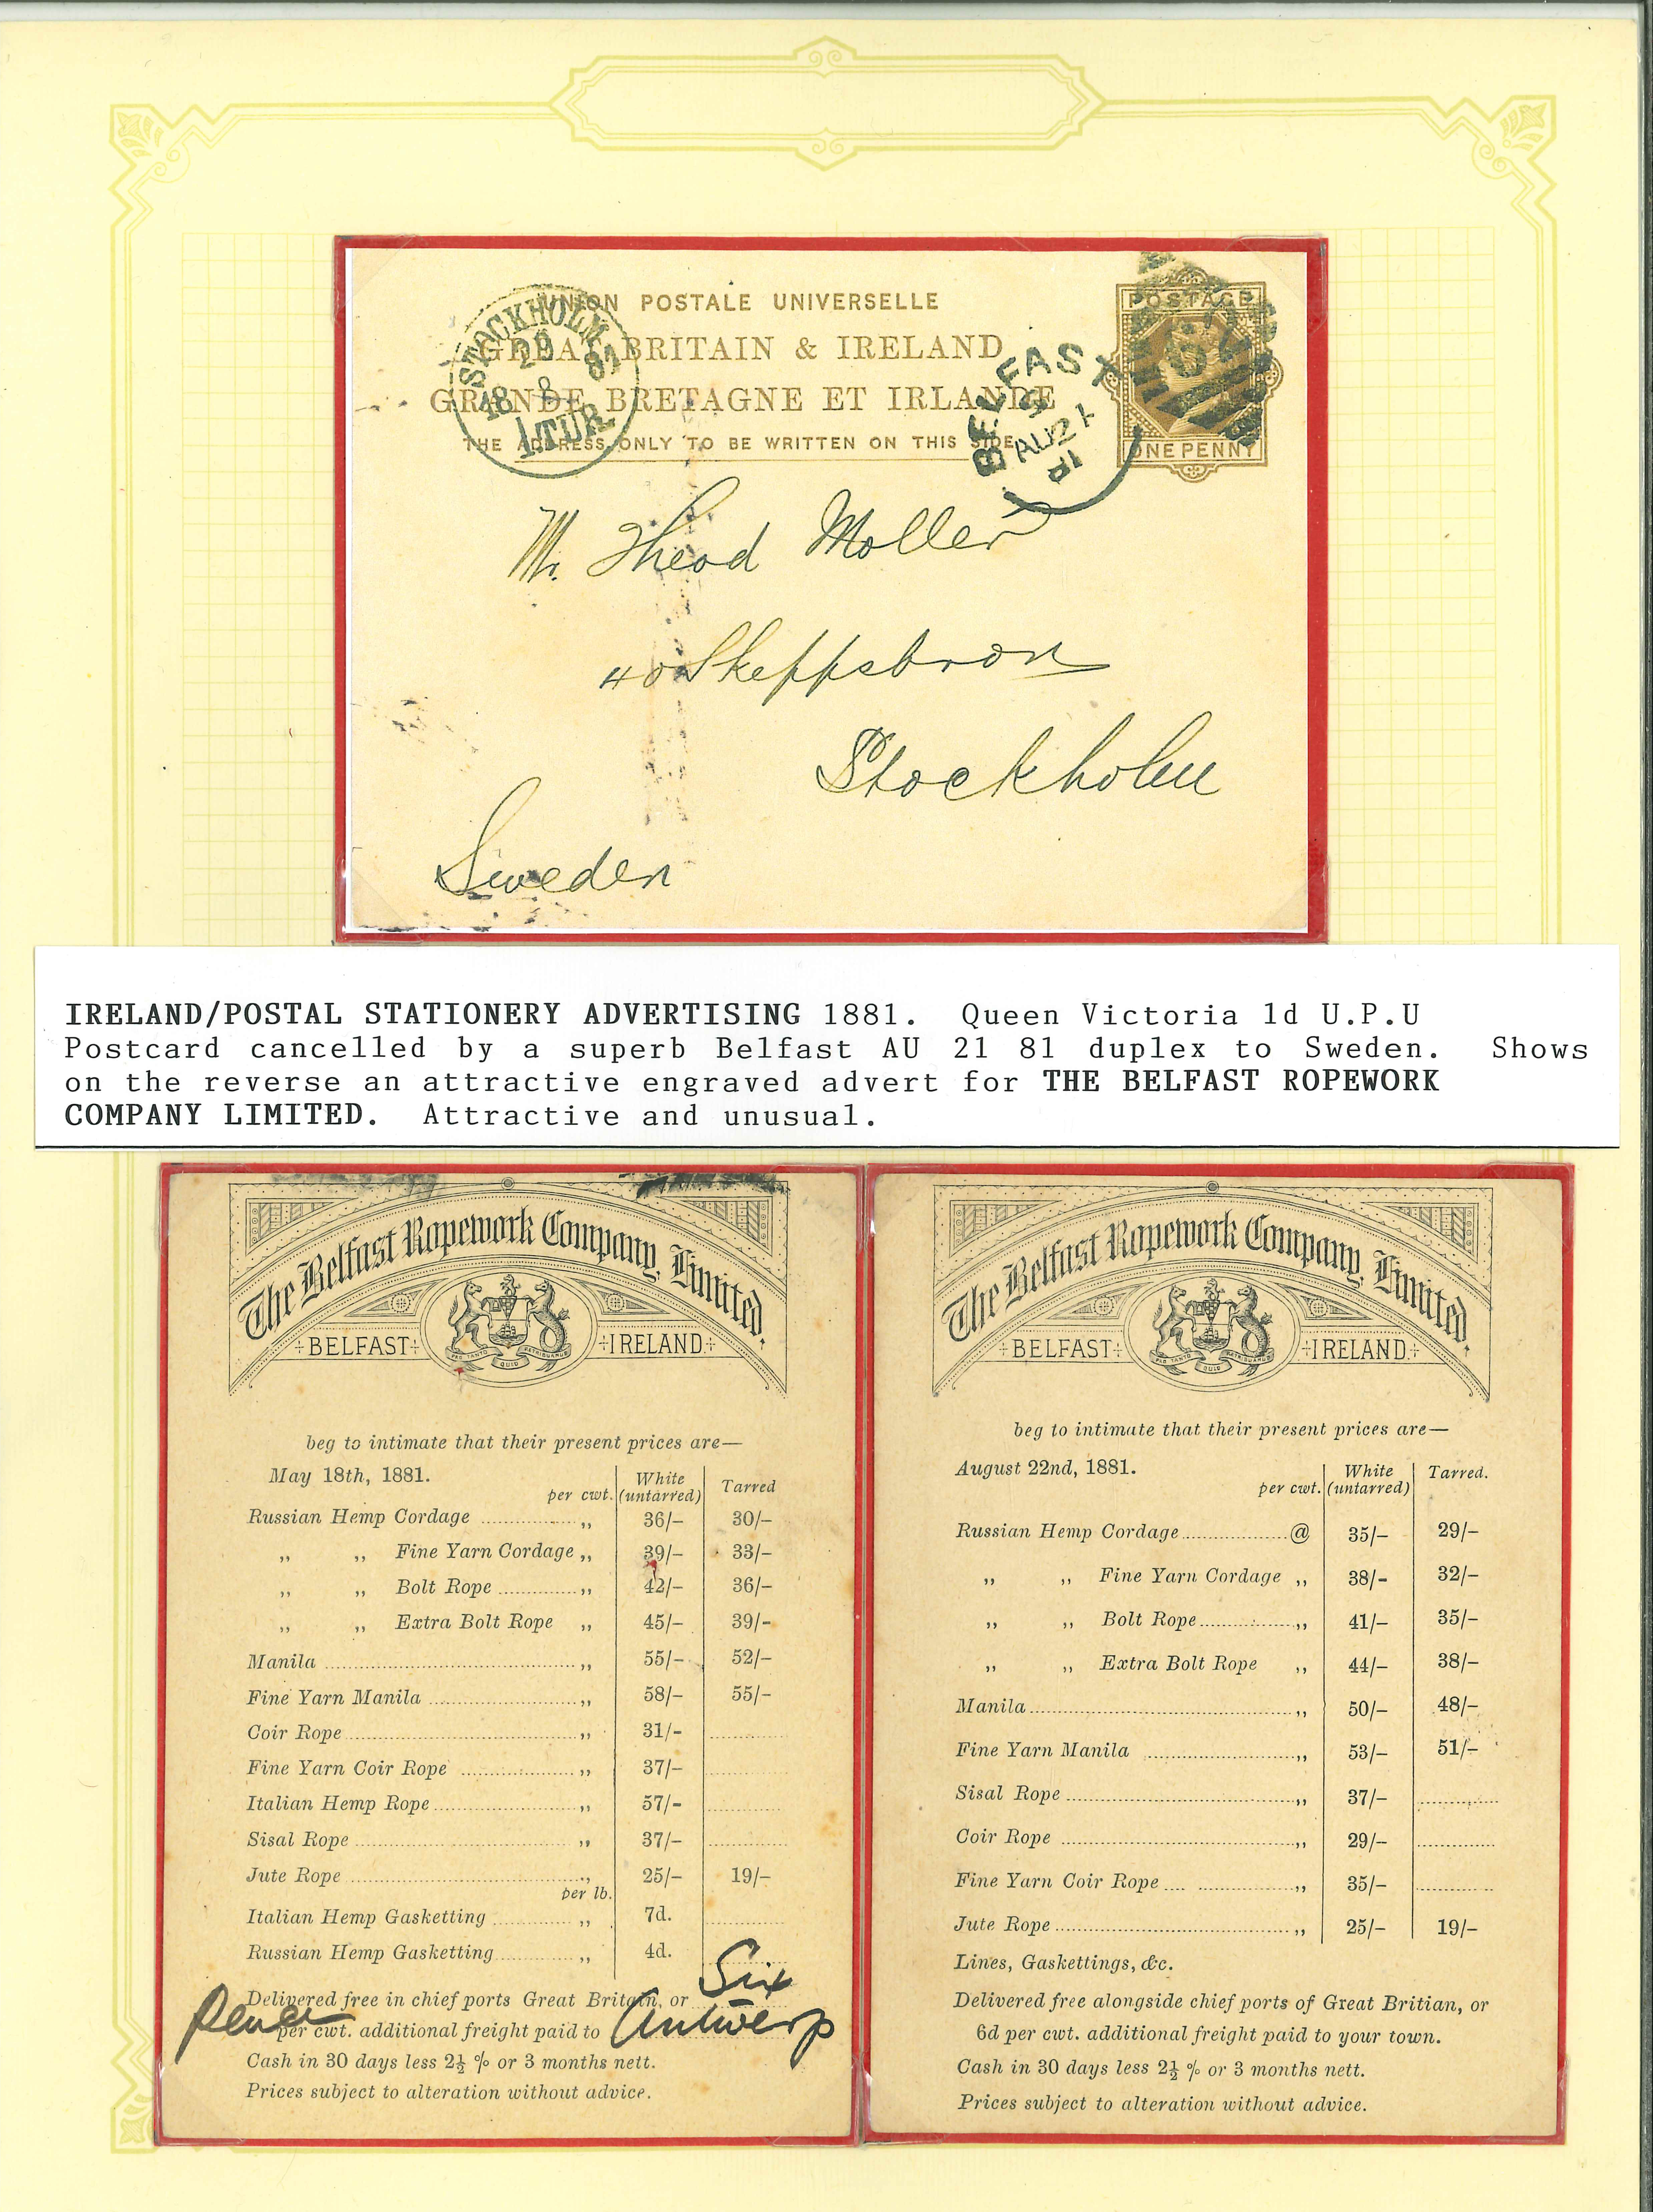 UNION POSTALE UNIVERSELLE
GREAT BRITAIN & IRELAND
GRANDE BRETAGNE ET IRLANDE
THE ADDRESS ONLY TO BE WRITTEN ON THIS SIDE
STOCKHOLM
18 8 81
1.TUR
BELFAST
AU 21
81
POSTAGE
ONE PENNY
Mr. Theod Moller
40 Skeppsbron
Stockholm
Sweden
IRELAND/POSTAL STATIONERY ADVERTISING 1881. Queen Victoria 1d U.P.U
Postcard cancelled by a superb Belfast AU 21 81 duplex to Sweden. Shows
on the reverse an attractive engraved advert for THE BELFAST ROPEWORK
COMPANY LIMITED. Attractive and unusual.
The Belfast Ropework Company, Limited.
BELFAST IRELAND
PRO TANTO QUID RETRIBUAMUS
beg to intimate that their present prices are—
May 18th, 1881.
per cwt. White (untarred) Tarred
Russian Hemp Cordage ,, 36/- 30/-
,, ,, Fine Yarn Cordage ,, 39/- 33/-
,, ,, Bolt Rope ,, 42/- 36/-
,, ,, Extra Bolt Rope ,, 45/- 39/-
Manila ,, 55/- 52/-
Fine Yarn Manila ,, 58/- 55/-
Coir Rope ,, 31/-
Fine Yarn Coir Rope ,, 37/-
Italian Hemp Rope ,, 57/-
Sisal Rope ,, 37/-
Jute Rope ,, 25/- 19/-
per lb.
Italian Hemp Gasketting ,, 7d.
Russian Hemp Gasketting ,, 4d.
Delivered free in chief ports Great Britain, or Six
Pence per cwt. additional freight paid to Antwerp
Cash in 30 days less 2½ % or 3 months nett.
Prices subject to alteration without advice.
The Belfast Ropework Company, Limited.
BELFAST IRELAND
PRO TANTO QUID RETRIBUAMUS
beg to intimate that their present prices are—
August 22nd, 1881.
per cwt. White (untarred) Tarred.
Russian Hemp Cordage @ 35/- 29/-
,, ,, Fine Yarn Cordage ,, 38/- 32/-
,, ,, Bolt Rope ,, 41/- 35/-
,, ,, Extra Bolt Rope ,, 44/- 38/-
Manila ,, 50/- 48/-
Fine Yarn Manila ,, 53/- 51/-
Sisal Rope ,, 37/-
Coir Rope ,, 29/-
Fine Yarn Coir Rope ,, 35/-
Jute Rope ,, 25/- 19/-
Lines, Gaskettings, &c.
Delivered free alongside chief ports of Great Britian, or
6d per cwt. additional freight paid to your town.
Cash in 30 days less 2½ % or 3 months nett.
Prices subject to alteration without advice.